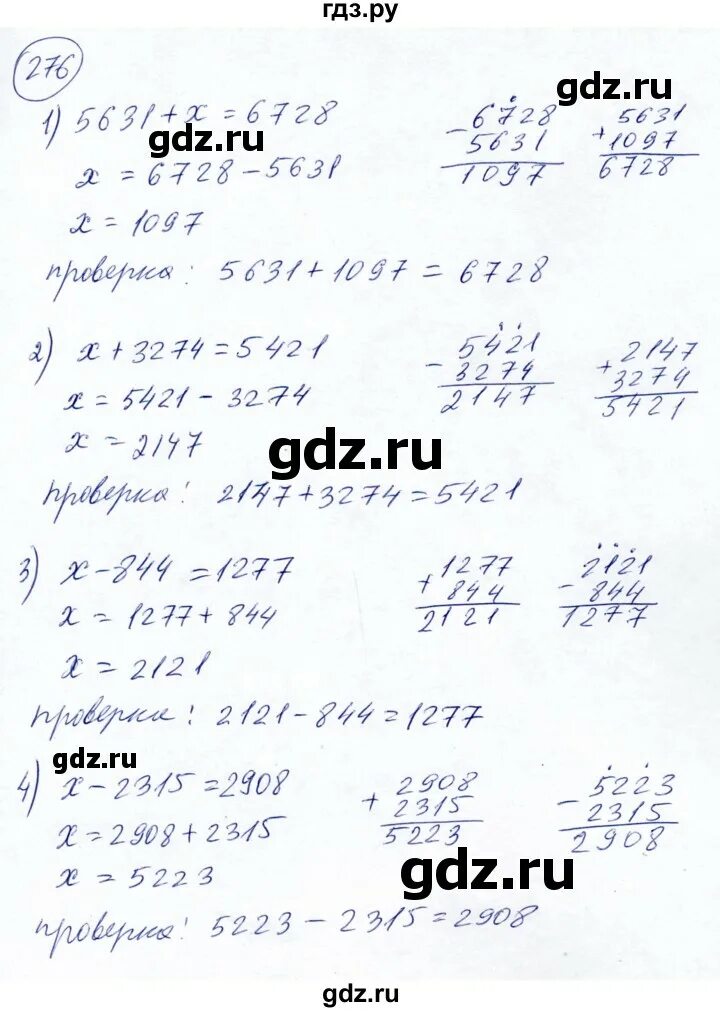 гдз.ру
276
gdz.ru
1) 5631 + x = 6728
x = 6728 - 5631
x = 1097
- 6728
5631
1097
5631
+ 1097
6728
gdz.ru
проверка: 5631 + 1097 = 6728
2) x + 3274 = 5421
x = 5421 - 3274
x = 2147
- 5421
3274
2147
+ 2147
3274
5421
gdz.ru
проверка: 2147 + 3274 = 5421
3) x - 844 = 1277
x = 1277 + 844
x = 2121
1277
+ 844
2121
2121
- 844
1277
проверка: 2121 - 844 = 1277
gdz.ru
4) x - 2315 = 2908
x = 2908 + 2315
x = 5223
2908
+ 2315
5223
- 5223
2315
2908
gdz.ru
проверка: 5223 - 2315 = 2908
gdz.ru